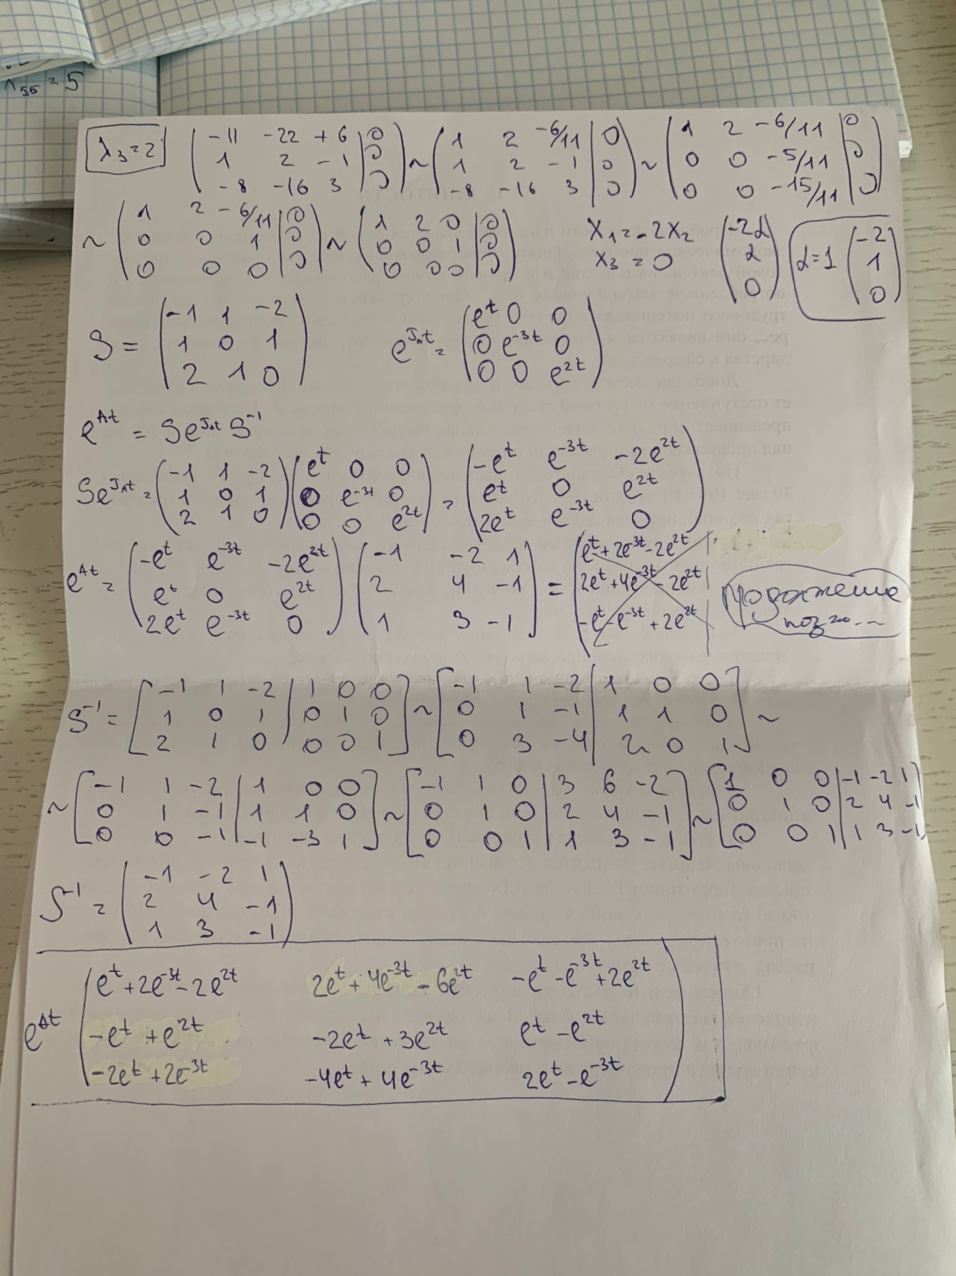 λ₅₅ = 5
λ₃=2 (-11 -22 +6 | 0; 1 2 -1 | 0; -8 -16 3 | 0) ~ (1 2 -6/11 | 0; 1 2 -1 | 0; -8 -16 3 | 0) ~ (1 2 -6/11 | 0; 0 0 -5/11 | 0; 0 0 -15/11 | 0)
~ (1 2 -6/11 | 0; 0 0 1 | 0; 0 0 0 | 0) ~ (1 2 0 | 0; 0 0 1 | 0; 0 0 0 | 0) x₁ = -2x₂ x₃ = 0 (-2α; α; 0) α=1 (-2; 1; 0)
S = (-1 1 -2; 1 0 1; 2 1 0) e^{J_A t} = (e^t 0 0; 0 e^{-3t} 0; 0 0 e^{2t})
e^{At} = S e^{J_A t} S^{-1}
S e^{J_A t} = (-1 1 -2; 1 0 1; 2 1 0)(e^t 0 0; 0 e^{-3t} 0; 0 0 e^{2t}) = (-e^t e^{-3t} -2e^{2t}; e^t 0 e^{2t}; 2e^t e^{-3t} 0)
e^{At} = (-e^t e^{-3t} -2e^{2t}; e^t 0 e^{2t}; 2e^t e^{-3t} 0) (-1 -2 1; 2 4 -1; 1 3 -1) = (e^t + 2e^{-3t} - 2e^{2t}; 2e^t + 4e^{-3t} - 2e^{2t}; -e^t - e^{-3t} + 2e^{2t})
S^{-1} = [-1 1 -2 | 1 0 0; 1 0 1 | 0 1 0; 2 1 0 | 0 0 1] ~ [-1 1 -2 | 1 0 0; 0 1 -1 | 1 1 0; 0 3 -4 | 2 0 1] ~
~ [-1 1 -2 | 1 0 0; 0 1 -1 | 1 1 0; 0 0 -1 | -1 -3 1] ~ [-1 1 0 | 3 6 -2; 0 1 0 | 2 4 -1; 0 0 1 | 1 3 -1] ~ [1 0 0 | -1 -2 1; 0 1 0 | 2 4 -1; 0 0 1 | 1 3 -1]
S^{-1} = (-1 -2 1; 2 4 -1; 1 3 -1)
e^{At} (e^t + 2e^{-3t} - 2e^{2t} 2e^t + 4e^{-3t} - 6e^{2t} -e^t - e^{-3t} + 2e^{2t}; -e^t + e^{2t} -2e^t + 3e^{2t} e^t - e^{2t}; -2e^t + 2e^{-3t} -4e^t + 4e^{-3t} 2e^t - e^{-3t})